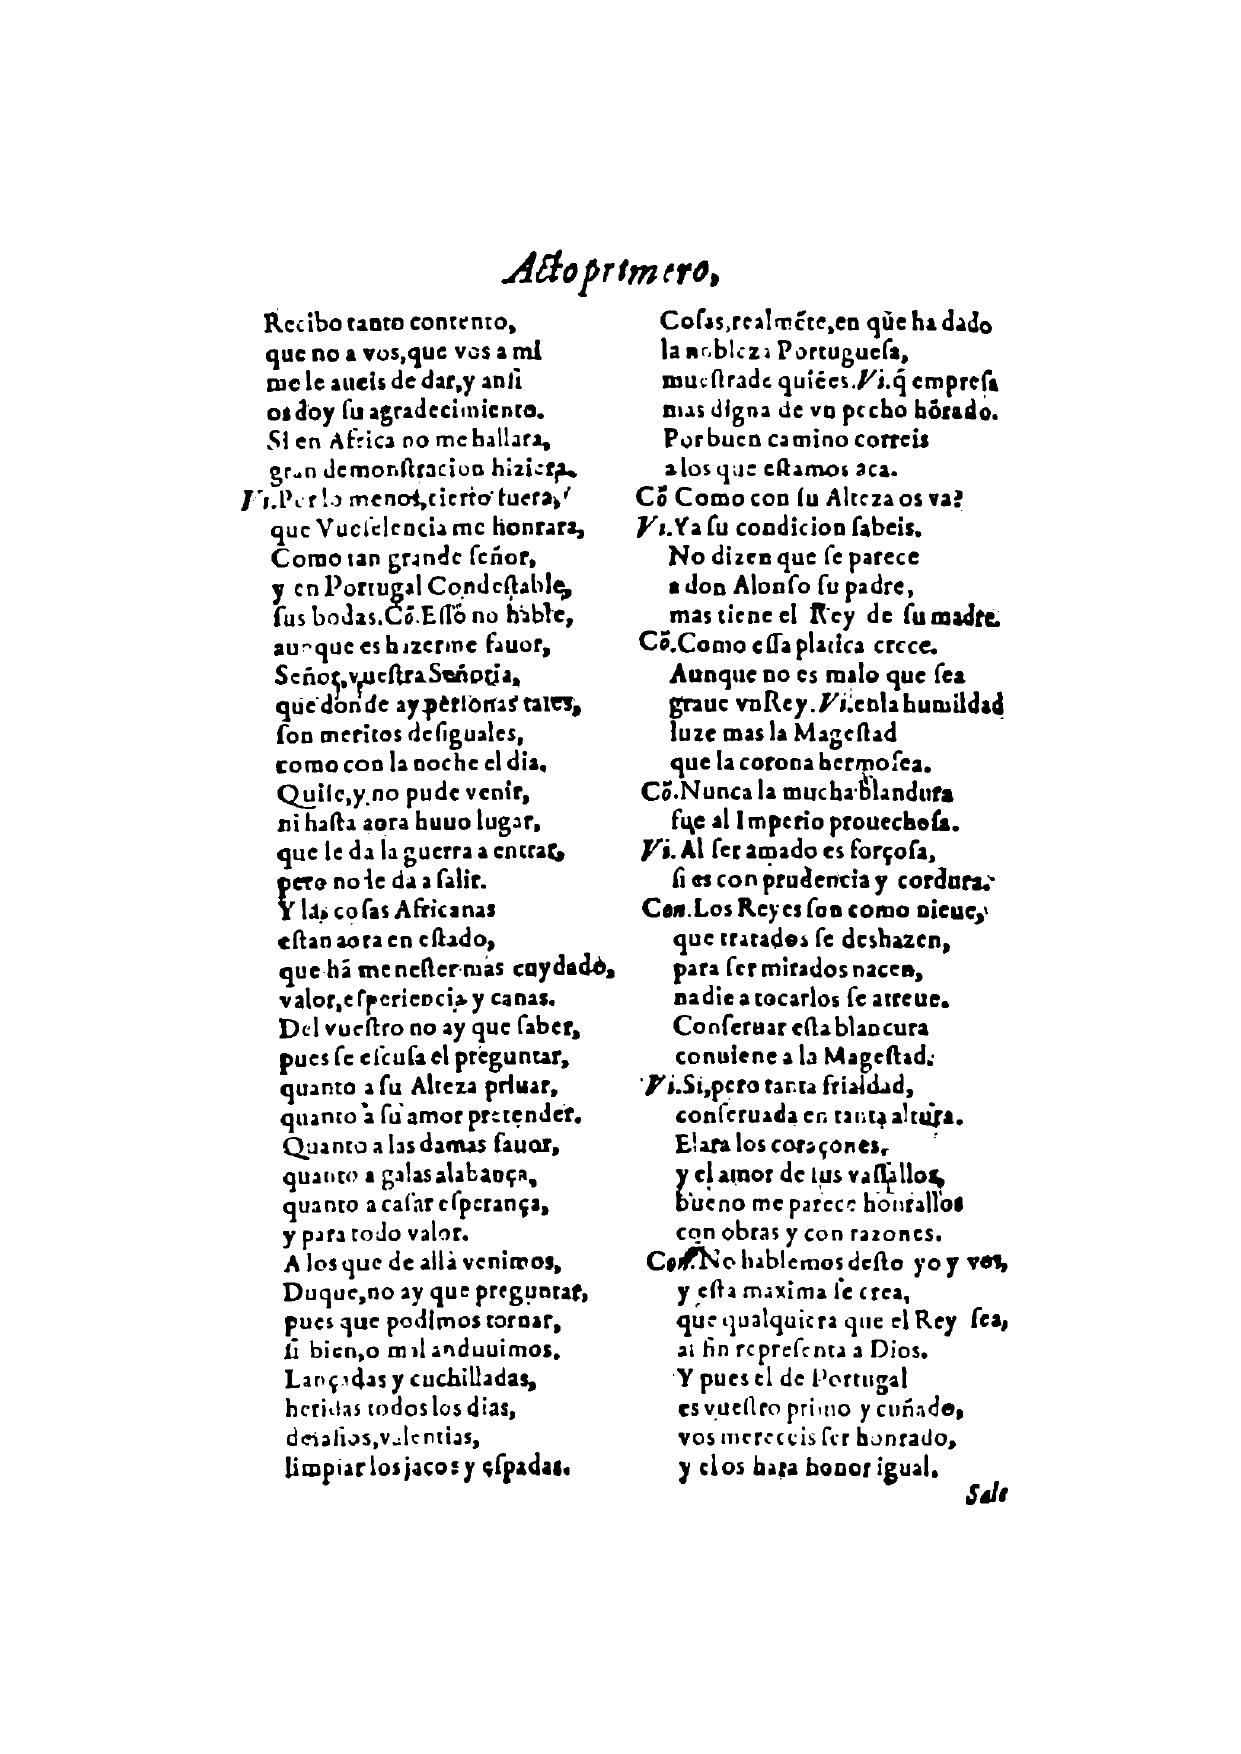 Acto primero,
Recibo tanto contento,
que no a vos, que vos a mi
me le aueis de dar, y ansi
os doy su agradecimiento.
Si en Africa no me hallara,
gran demonstracion hiziera.
Vi. Por lo menos, cierto fuera,
que Vucselencia me honrara,
Como tan grande señor,
y en Portugal Condestable,
sus bodas. Cõ. Esso no hable,
aunque es hazerme fauor,
Señor, vuestra Señoria,
que donde ay personas tales,
son meritos desiguales,
como con la noche el dia.
Quise, y no pude venir,
ni hasta aora huuo lugar,
que le da la guerra a entrar,
pero no le da a salir.
Y las cosas Africanas
estan aora en estado,
que hã menester mas cuydado,
valor, esperiencia y canas.
Del vuestro no ay que saber,
pues se escusa el preguntar,
quanto a su Alteza priuar,
quanto a su amor pretender.
Quanto a las damas fauor,
quanto a galas alabança,
quanto a casar esperança,
y para todo valor.
A los que de allà venimos,
Duque, no ay que preguntar,
pues que podimos tornar,
si bien, o mal anduuimos.
Lançadas y cuchilladas,
heridas todos los dias,
desafios, valentias,
limpiar los jacos y espadas.
Cosas, realmẽte, en que ha dado
la nobleza Portuguesa,
muestra de quiẽ es. Vi. q̃ empresa
mas digna de vn pecho hõrado.
Por buen camino correis
a los que estamos aca.
Cõ Como con su Alteza os va?
Vi. Ya su condicion sabeis.
No dizen que se parece
a don Alonso su padre,
mas tiene el Rey de su madre.
Cõ. Como essa platica crece.
Aunque no es malo que sea
graue vn Rey. Vi. en la humildad
luze mas la Magestad
que la corona hermosea.
Cõ. Nunca la mucha blandura
fue al Imperio prouechosa.
Vi. Al ser amado es forçosa,
si es con prudencia y cordura.
Con. Los Reyes son como nieue,
que tratados se deshazen,
para ser mirados nacen,
nadie a tocarlos se atreue.
Conseruar esta blancura
conuiene a la Magestad.
Vi. Si, pero tanta frialdad,
conseruada en tanta altura.
Elara los coraçones,
y el amor de sus vassallos,
bueno me parece honrallos
con obras y con razones.
Con. No hablemos desto yo y vos,
y esta maxima se crea,
que qualquiera que el Rey sea,
al fin representa a Dios.
Y pues el de Portugal
es vuestro primo y cuñado,
vos mereceis ser honrado,
y el os hara honor igual.
Sale